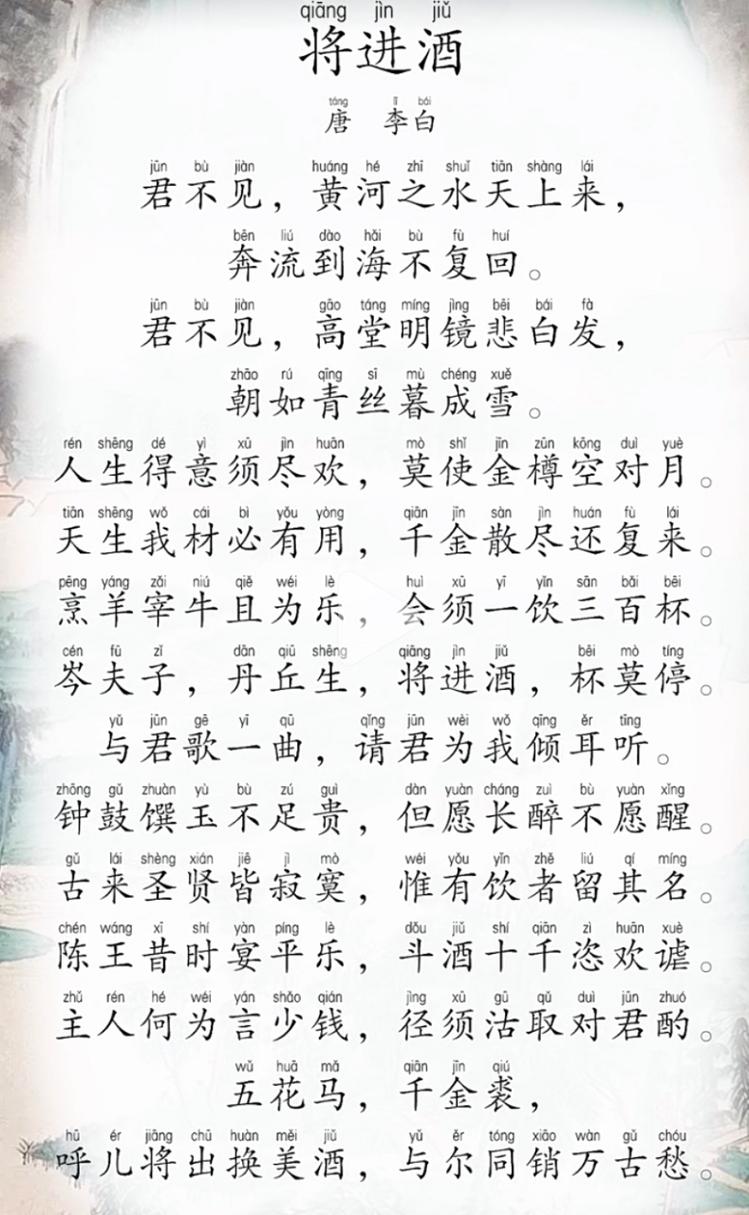 qiāng jìn jiǔ
将进酒
táng lǐ bái
唐 李白
jūn bù jiàn huáng hé zhī shuǐ tiān shàng lái
君不见，黄河之水天上来，
bēn liú dào hǎi bù fù huí
奔流到海不复回。
jūn bù jiàn gāo táng míng jìng bēi bái fà
君不见，高堂明镜悲白发，
zhāo rú qīng sī mù chéng xuě
朝如青丝暮成雪。
rén shēng dé yì xū jìn huān mò shǐ jīn zūn kōng duì yuè
人生得意须尽欢，莫使金樽空对月。
tiān shēng wǒ cái bì yǒu yòng qiān jīn sàn jìn huán fù lái
天生我材必有用，千金散尽还复来。
pēng yáng zǎi niú qiě wéi lè huì xū yī yǐn sān bǎi bēi
烹羊宰牛且为乐，会须一饮三百杯。
cén fū zǐ dān qiū shēng qiāng jìn jiǔ bēi mò tíng
岑夫子，丹丘生，将进酒，杯莫停。
yǔ jūn gē yī qū qǐng jūn wèi wǒ qīng ěr tīng
与君歌一曲，请君为我倾耳听。
zhōng gǔ zhuàn yù bù zú guì dàn yuàn cháng zuì bù yuàn xǐng
钟鼓馔玉不足贵，但愿长醉不愿醒。
gǔ lái shèng xián jiē jì mò wéi yǒu yǐn zhě liú qí míng
古来圣贤皆寂寞，惟有饮者留其名。
chén wáng xī shí yàn píng lè dǒu jiǔ shí qiān zì huān xuè
陈王昔时宴平乐，斗酒十千恣欢谑。
zhǔ rén hé wéi yán shǎo qián jìng xū gū qǔ duì jūn zhuó
主人何为言少钱，径须沽取对君酌。
wǔ huā mǎ qiān jīn qiú
五花马，千金裘，
hū ér jiāng chū huàn měi jiǔ yǔ ěr tóng xiāo wàn gǔ chóu
呼儿将出换美酒，与尔同销万古愁。